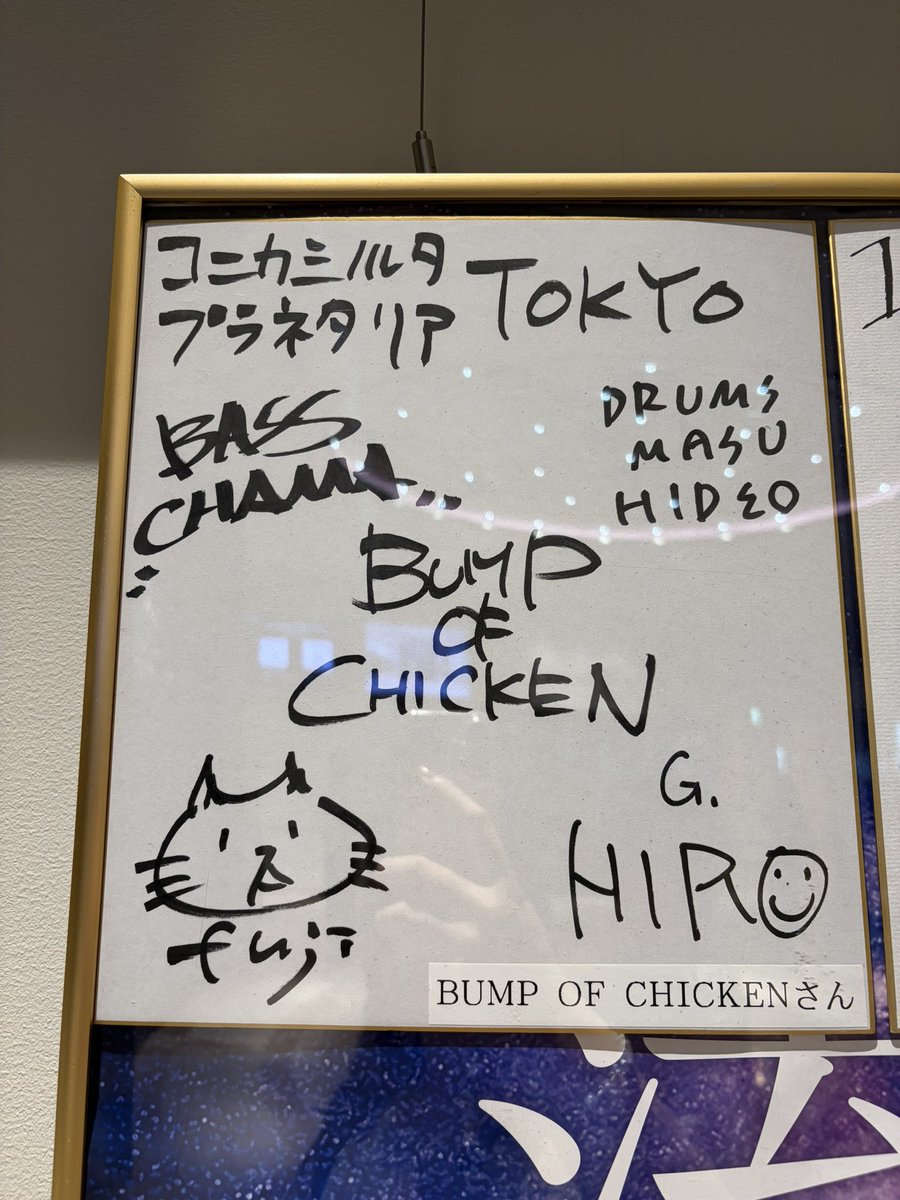 コニカミノルタ
プラネタリア TOKYO
BASS
CHAMA...
DRUMS
MASU
HIDEO
BUMP
OF
CHICKEN
fuji
G.
HIRO
BUMP OF CHICKENさん